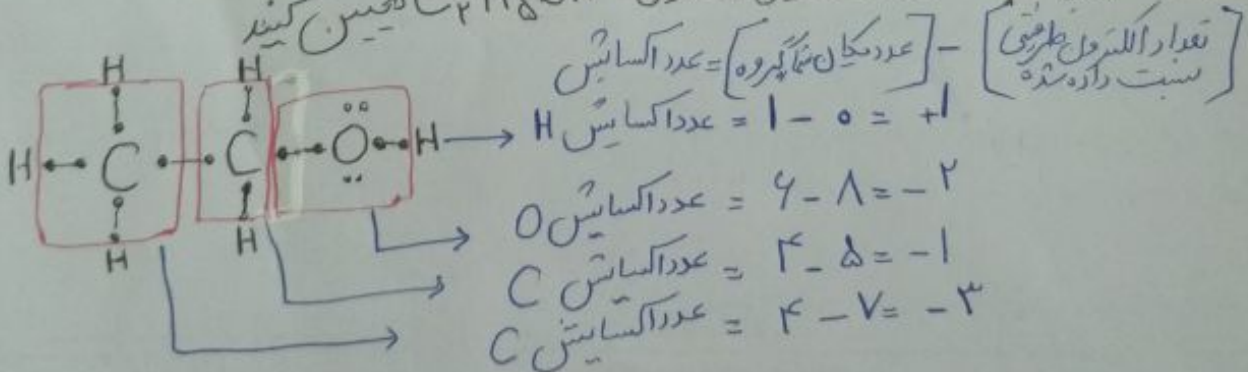 تعیین کنید
عدد اکسایش = [عدد یکان شماره گروه] - [تعداد الکترون ظرفیتی نسبت داده شده]
H H
H C C O H → عدد اکسایش H = ۱ - ۰ = +۱
H H
عدد اکسایش O = ۶ - ۸ = -۲
عدد اکسایش C = ۴ - ۵ = -۱
عدد اکسایش C = ۴ - ۷ = -۳